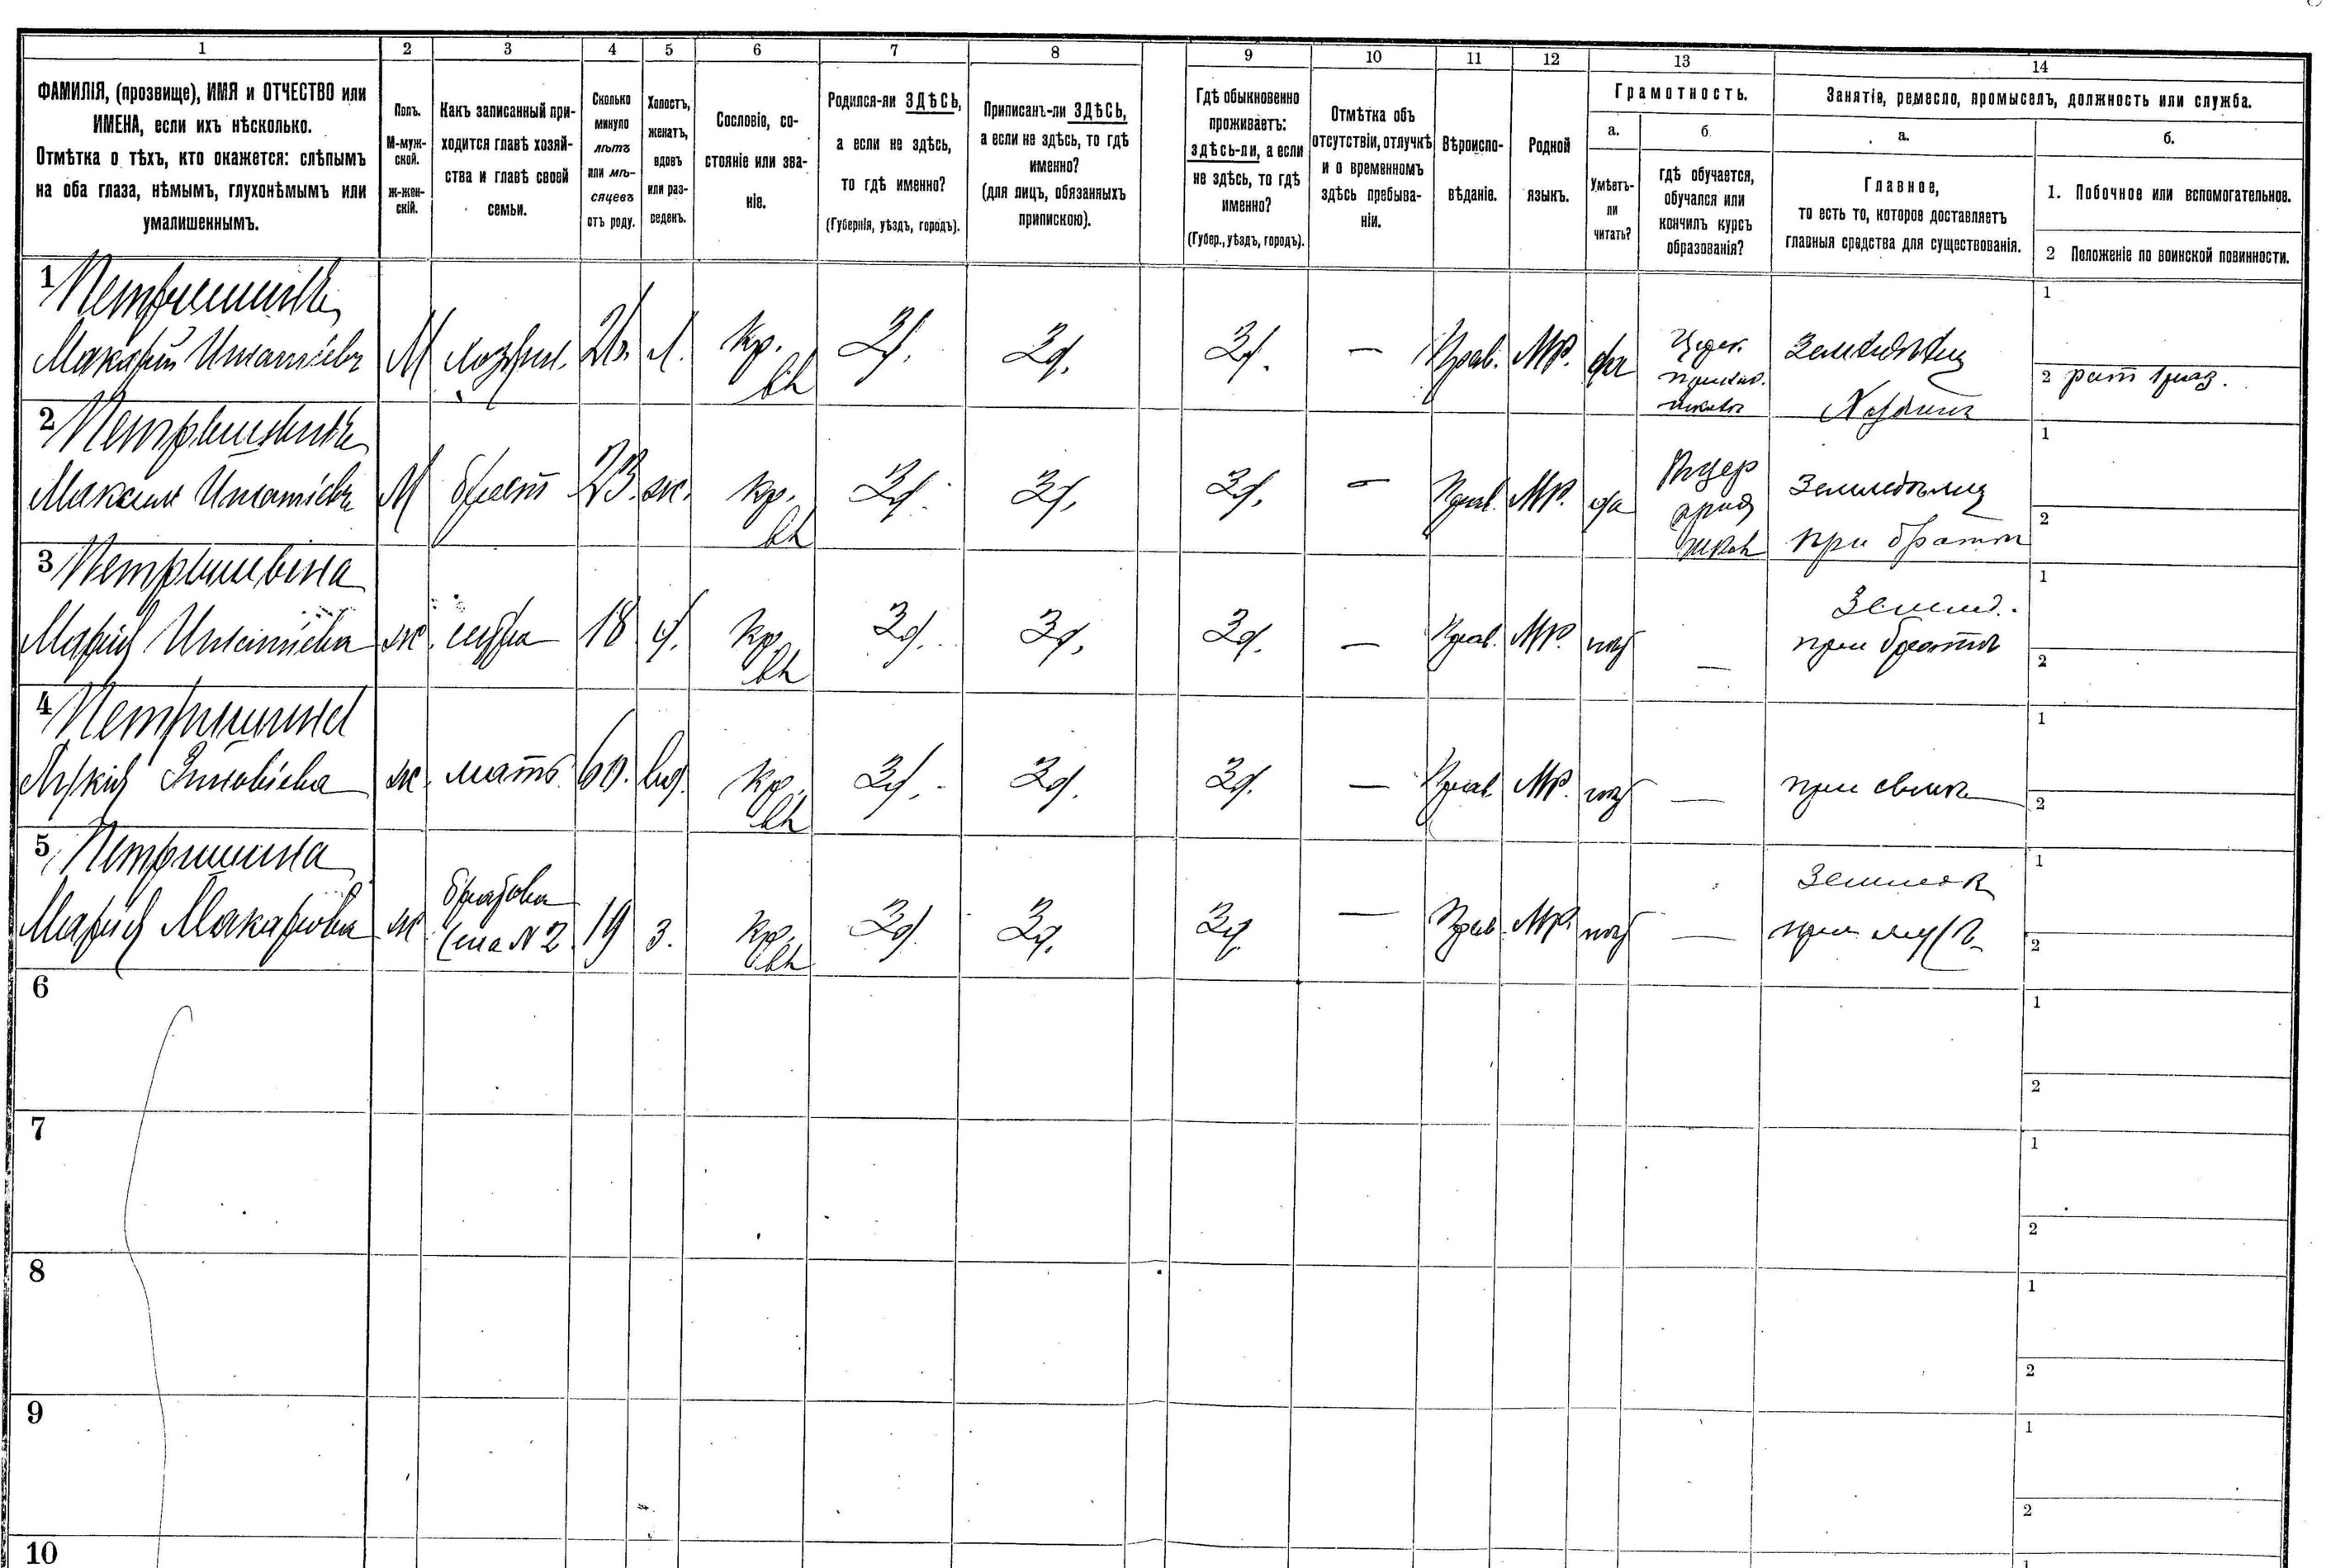 1 2 3 4 5 6 7 8 9 10 11 12 13 14
ФАМИЛІЯ, (прозвище), ИМЯ и ОТЧЕСТВО или
ИМЕНА, если ихъ нѣсколько.
Отмѣтка о тѣхъ, кто окажется: слѣпымъ
на оба глаза, нѣмымъ, глухонѣмымъ или
умалишеннымъ.
Полъ.
М-муж-
ской.
ж-жен-
скій.
Какъ записанный при-
ходится главѣ хозяй-
ства и главѣ своей
семьи.
Сколько
минуло
лѣтъ
или мѣ-
сяцевъ
отъ роду.
Холостъ,
женатъ,
вдовъ
или раз-
веденъ.
Сословіе, со-
стояніе или зва-
ніе.
Родился-ли ЗДѢСЬ,
а если не здѣсь,
то гдѣ именно?
(Губернія, уѣздъ, городъ).
Приписанъ-ли ЗДѢСЬ,
а если не здѣсь, то гдѣ
именно?
(для лицъ, обязанныхъ
припискою).
Гдѣ обыкновенно
проживаетъ:
здѣсь-ли, а если
не здѣсь, то гдѣ
именно?
(Губер., уѣздъ, городъ).
Отмѣтка объ
отсутствіи, отлучкѣ
и о временномъ
здѣсь пребыва-
ніи.
Вѣроиспо-
вѣданіе.
Родной
языкъ.
Грамотность.
а.
Умѣетъ-
ли
читать?
б.
гдѣ обучается,
обучался или
кончилъ курсъ
образованія?
Занятіе, ремесло, промыселъ, должность или служба.
а.
Главное,
то есть то, которое доставляетъ
главныя средства для существованія.
б.
1. Побочное или вспомогательное.
2 Положеніе по воинской повинности.
1
Макарій Игнатіевъ М 26. Кр. Зд. Зд. Зд. — Прав. МР. да
Хозяинъ
1
2 рат 1 раз.
2
Максим Игнатіевъ М братъ 23. ж. Кр. Зд. Зд. Зд. — Прав. МР. да
Земледѣлец
при братѣ
1
2
3
Марія Игнатіева ж. сестра 18 д. Кр. Зд. Зд. Зд. — Прав. МР. нѣт —
Землед.
при братѣ
1
2
4
Зиновіева ж. мать 60. вд. Кр. Зд. Зд. Зд. — Прав. МР. нѣт —
1
2
5
Марія Макарова ж. 19 з. Кр. Зд. Зд. Зд. — Прав. МР. нѣт —
№ 2
при мужѣ
1
2
6
1
2
7
1
2
8
1
2
9
1
2
10
1